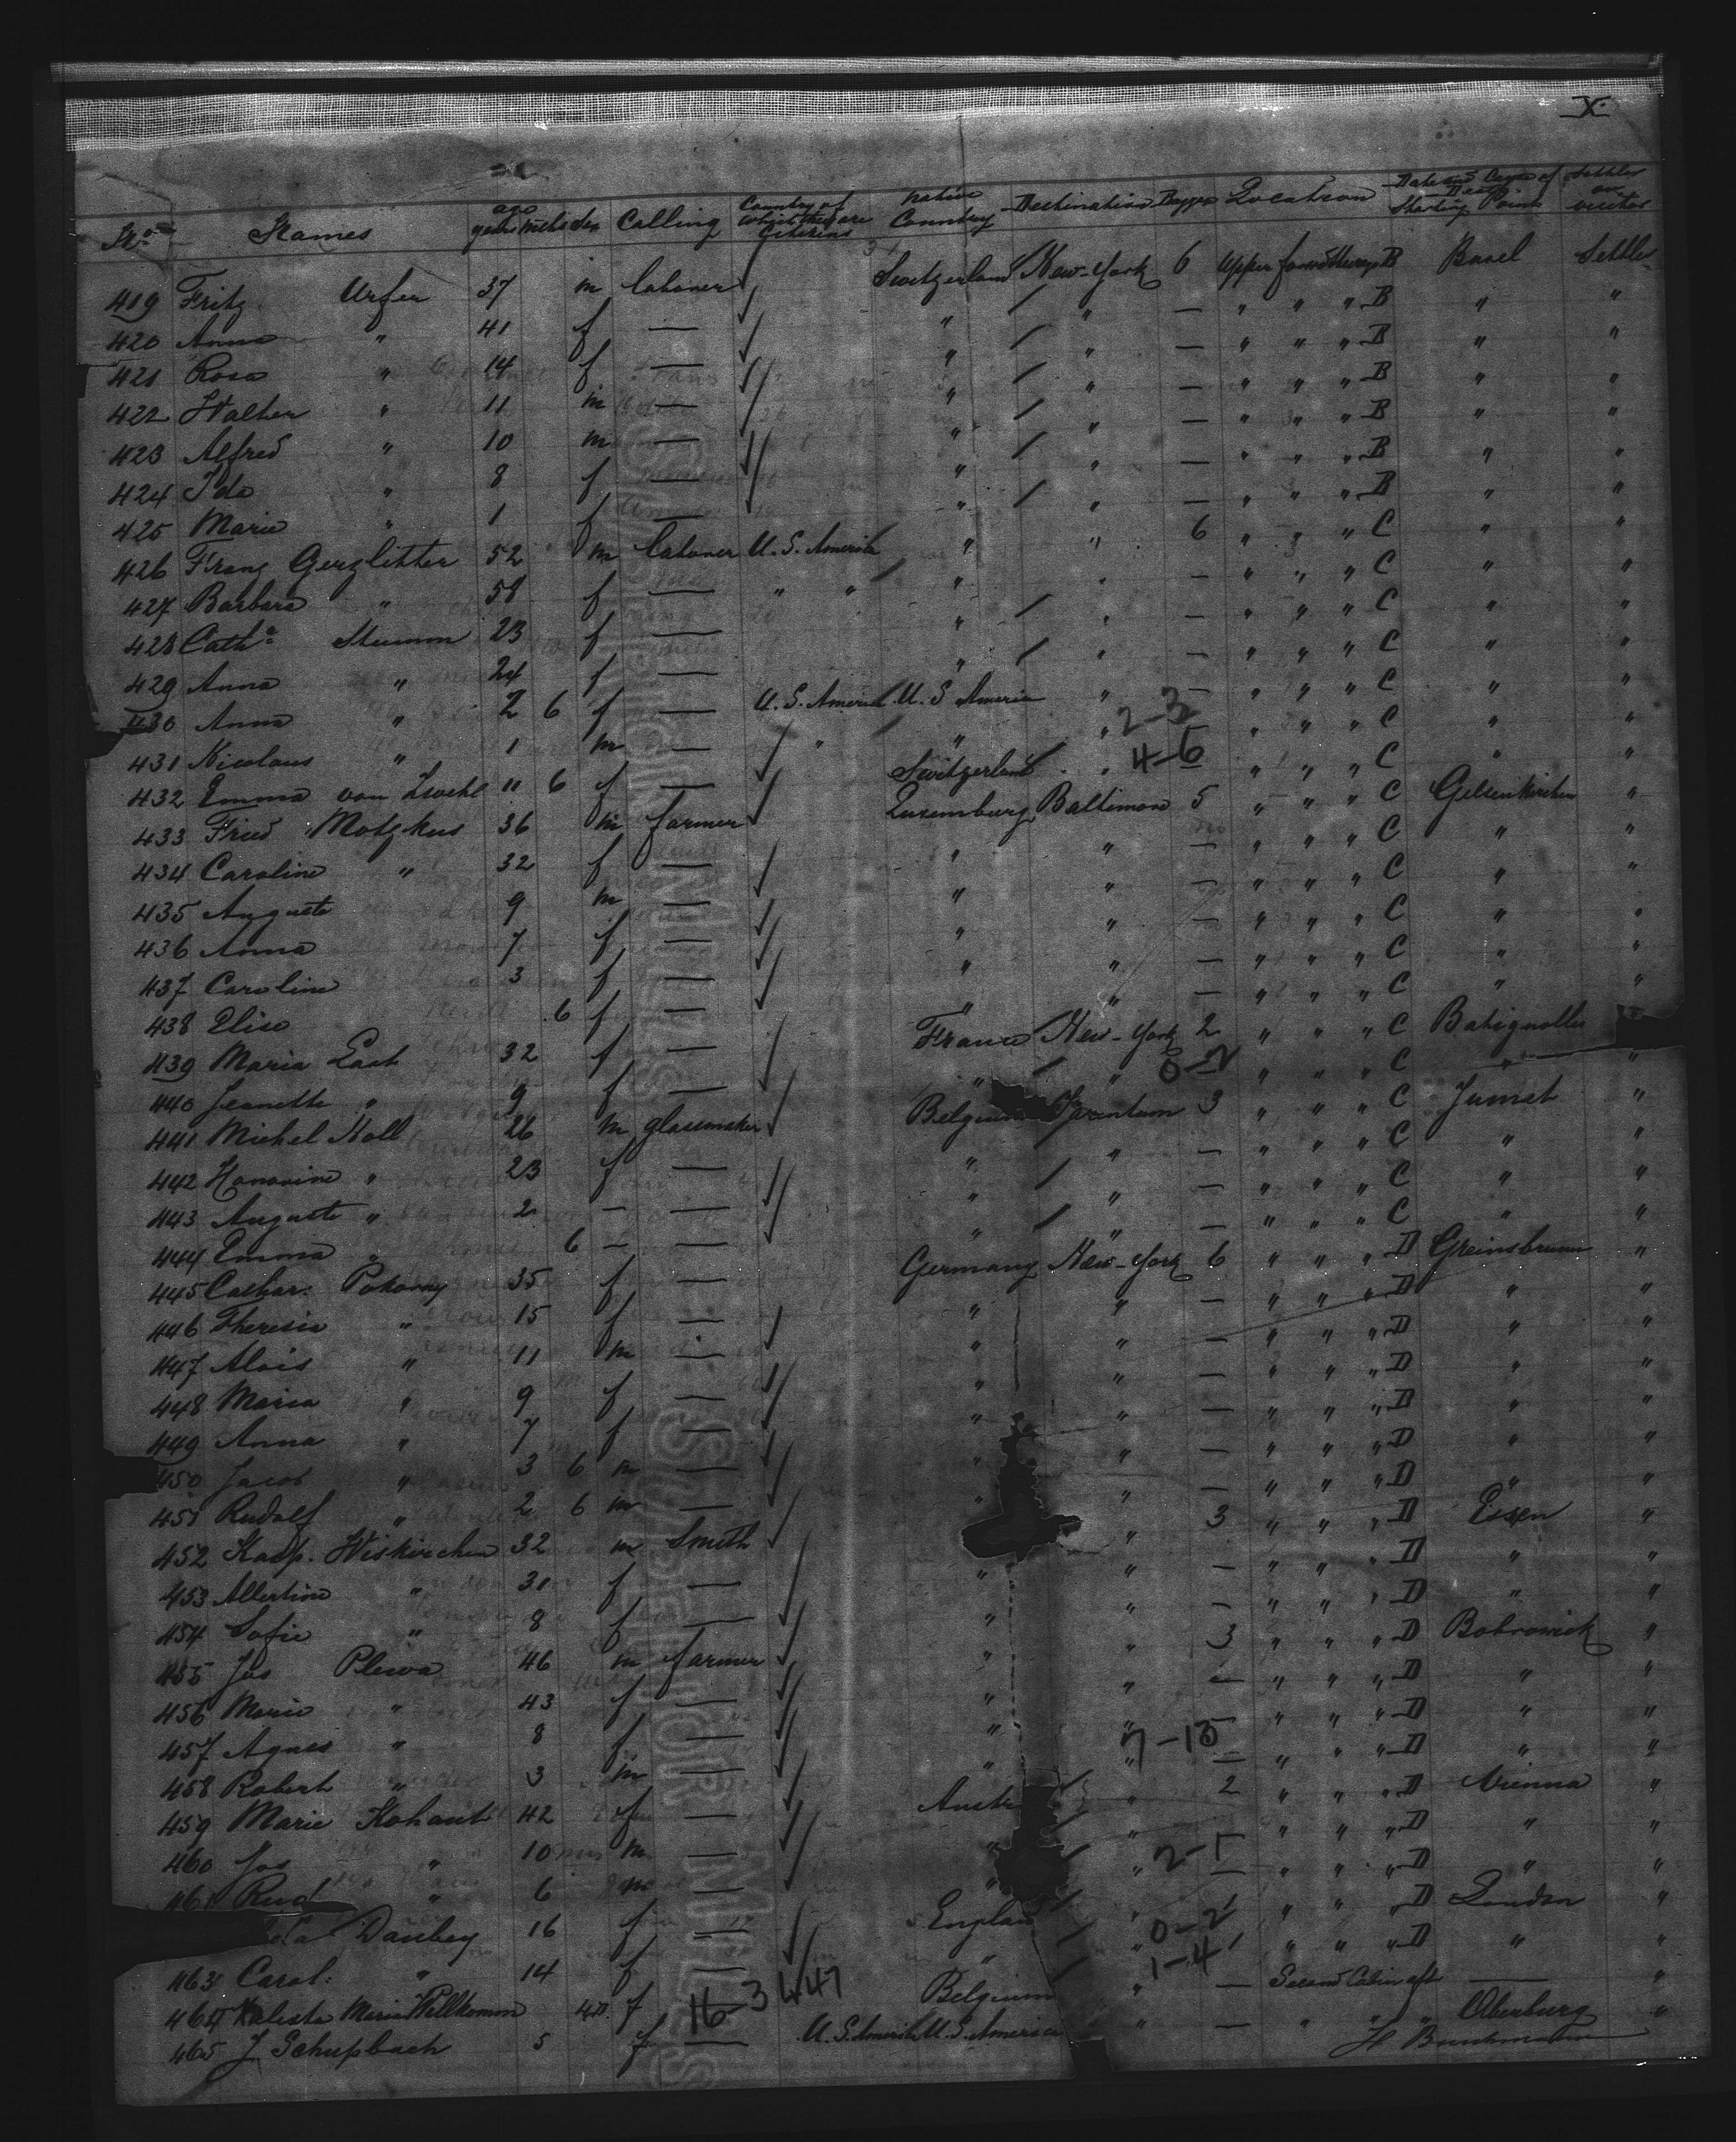 X.
No. Names age years mths Sex Calling Country of which they are Citizens Native Country Destination Baggage Location Date and Cause of Death Starting Point Settler or visitor
419 Fritz Urfer 37 m labourer Switzerland New-York 6 Upper forwd B Basel Settler
420 Anna " 41 f — " " — " " " B " "
421 Rosa " 14 f — " " — " " " B " "
422 Walther " 11 m — " " — " " " B " "
423 Alfred " 10 m — " " — " " " B " "
424 Ida " 8 f — " " — " " " B " "
425 Marie " 1 f — " " — " " " B " "
426 Franz Gerzlitter 52 m labourer U. S. Amerika " " 6 " " " C " "
427 Barbara " 58 f — " " " " — " " " C " "
428 Catha Stumm 23 f — " " — " " " C " "
429 Anna " 24 f — " " — " " " C " "
430 Anna " 2 6 f — U. S. America U. S America " — " " " C " "
431 Nicolaus " 1 m — " " " 2-3 — " " " C " "
432 Emma von Zwehl 11 6 f — Switzerland " 4-6 — " " " C " "
433 Fried Motzkus 36 m farmer Luxemburg Baltimore 5 " " " C Gelsenkirchen "
434 Caroline " 32 f — " " — " " " C " "
435 Auguste 9 m — " " — " " " C " "
436 Anna 7 f — " " — " " " C " "
437 Caroline 3 f — " " — " " " C " "
438 Elise 6 f — " " — " " " C " "
439 Maria Last 32 f — France New-York 2 " " " C Batignolles
440 Jeanette " 9 f — " " 0-2 " " " C " "
441 Michel Noll 26 m glassmaker Belgium Tarentum 3 " " " C Jumet "
442 Honorine " 23 f — " " — " " " C " "
443 Auguste " 2 — — " " — " " " C " "
444 Emma " 6 — — " " — " " " C " "
445 Cathar. Pokorny 35 f — Germany New-York 6 " " " D Greinsbrunn "
446 Theresia " 15 f — " " — " " " D " "
447 Alois " 11 m — " " — " " " D " "
448 Maria " 9 f — " " — " " " D " "
449 Anna " 7 f — " " — " " " D " "
450 Jacob " 3 6 m — " " — " " " D " "
451 Rudolf " 2 6 m — " " — " " " D " "
452 Kasp. Wiskirchen 32 m Smith " 3 " " " D Essen "
453 Albertine " 31 f — " " — " " " D " "
454 Sofie " 8 f — " " — " " " D " "
455 Jos Plewa 46 m farmer " " 3 " " " D Bobrownik "
456 Marie " 43 f — " " — " " " D " "
457 Agnes " 8 f — " " — " " " D " "
458 Robert " 3 m — " " 7-13 — " " " D " "
459 Marie Kohaut 42 f — Aust " 2 " " " D Vienna "
460 Jos " 10 m — " " — " " " D " "
461 Rud " 6 m — " " 2-1 — " " " D " "
Danbey 16 f — England " 0-2 " " " D London "
463 Carol. " 14 f — " " 1-4 " " " D " "
464 Kalesta Maria Willkomm f 16 3 447 Belgium " — Second Cabin aft — "
465 J Schupbach 5 f — U. S. Amerika U. S. America " — " " " Oberburg "